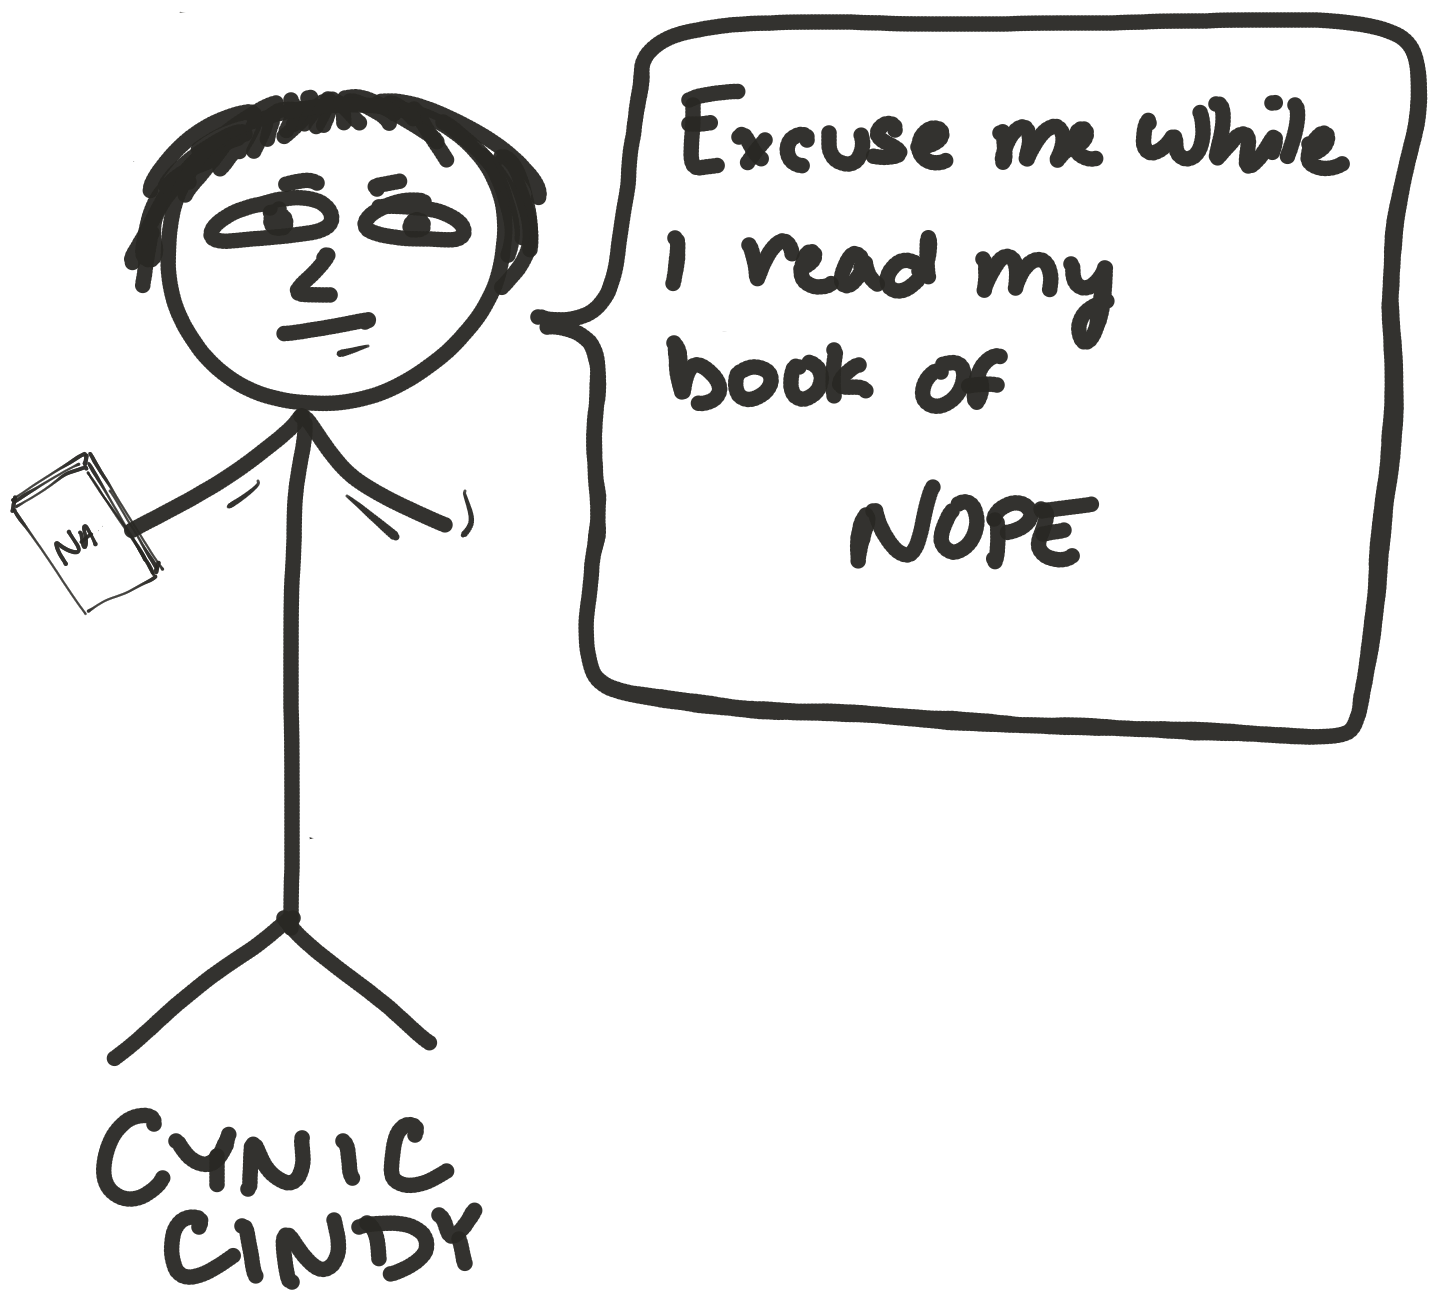 Excuse me while
I read my
book of
NOPE
NA
CYNIC
CINDY